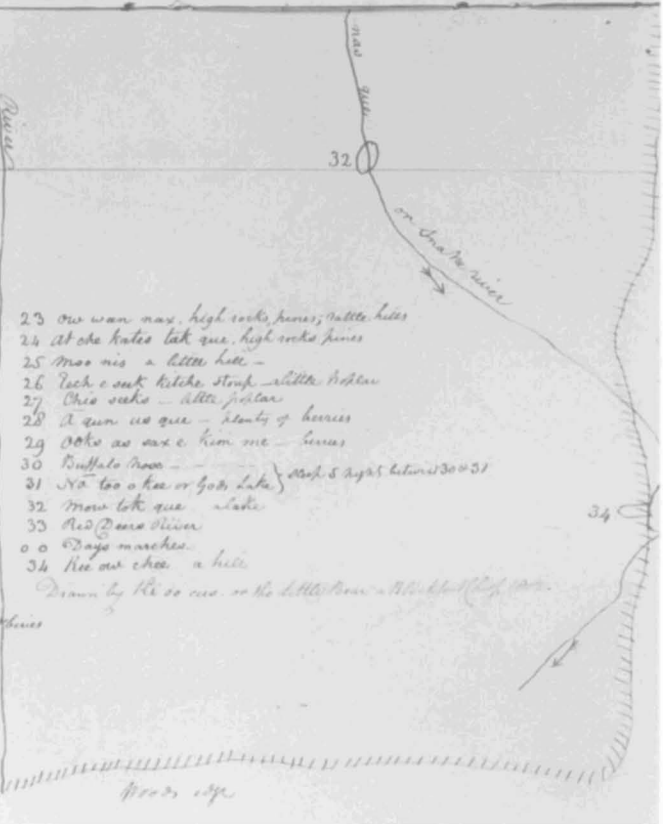 nas que
River
32
or Snake river
23 Ow wan nax. high rocks, pines, rattle hills
24 At che kates tak que, high rocks pines
25 Moo nis a little hill -
26 Ech e seek kitche stoup - little poplar
27 Chis seeks - little poplar
28 A qun us que - plenty of berries
29 Ooks as sax e kim me - berries
30 Buffalo Nose -
31 Na too o kee or Gods Lake } sleep 5 nights between 30 & 31
32 Mow tok que a lake
33 Red Deers River
0 0 Days marches.
34 Kee ow chee a hill
Drawn by Ki oo cus. or the Little Bear a Blackfoot Chief
34
Woods edge